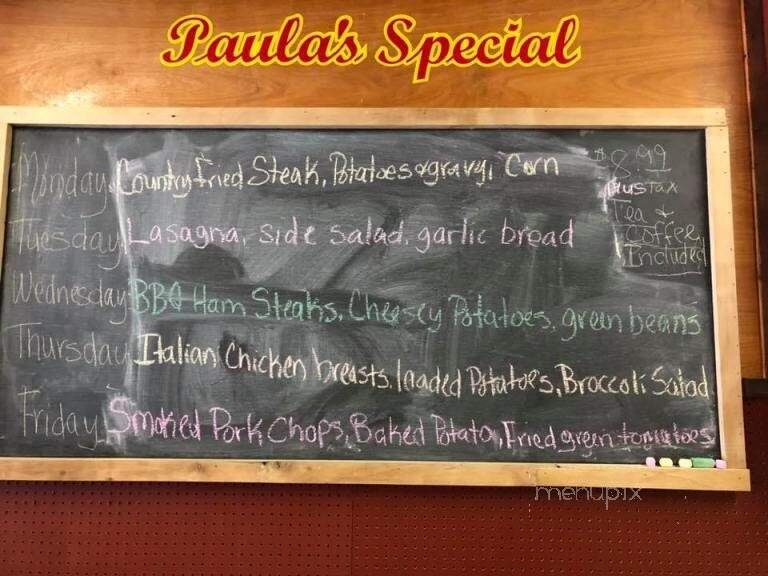 Paula's Special
Monday Country Fried Steak, Potatoes & gravy, Corn
$8.99
plus tax
Tea &
Coffee
Included
Tuesday Lasagna, side salad, garlic bread
Wednesday BBQ Ham Steaks, Cheesey Potatoes, green beans
Thursday Italian Chicken breasts, loaded Potatoes, Broccoli Salad
Friday Smoked Pork Chops, Baked Potato, Fried green tomatoes
menupix